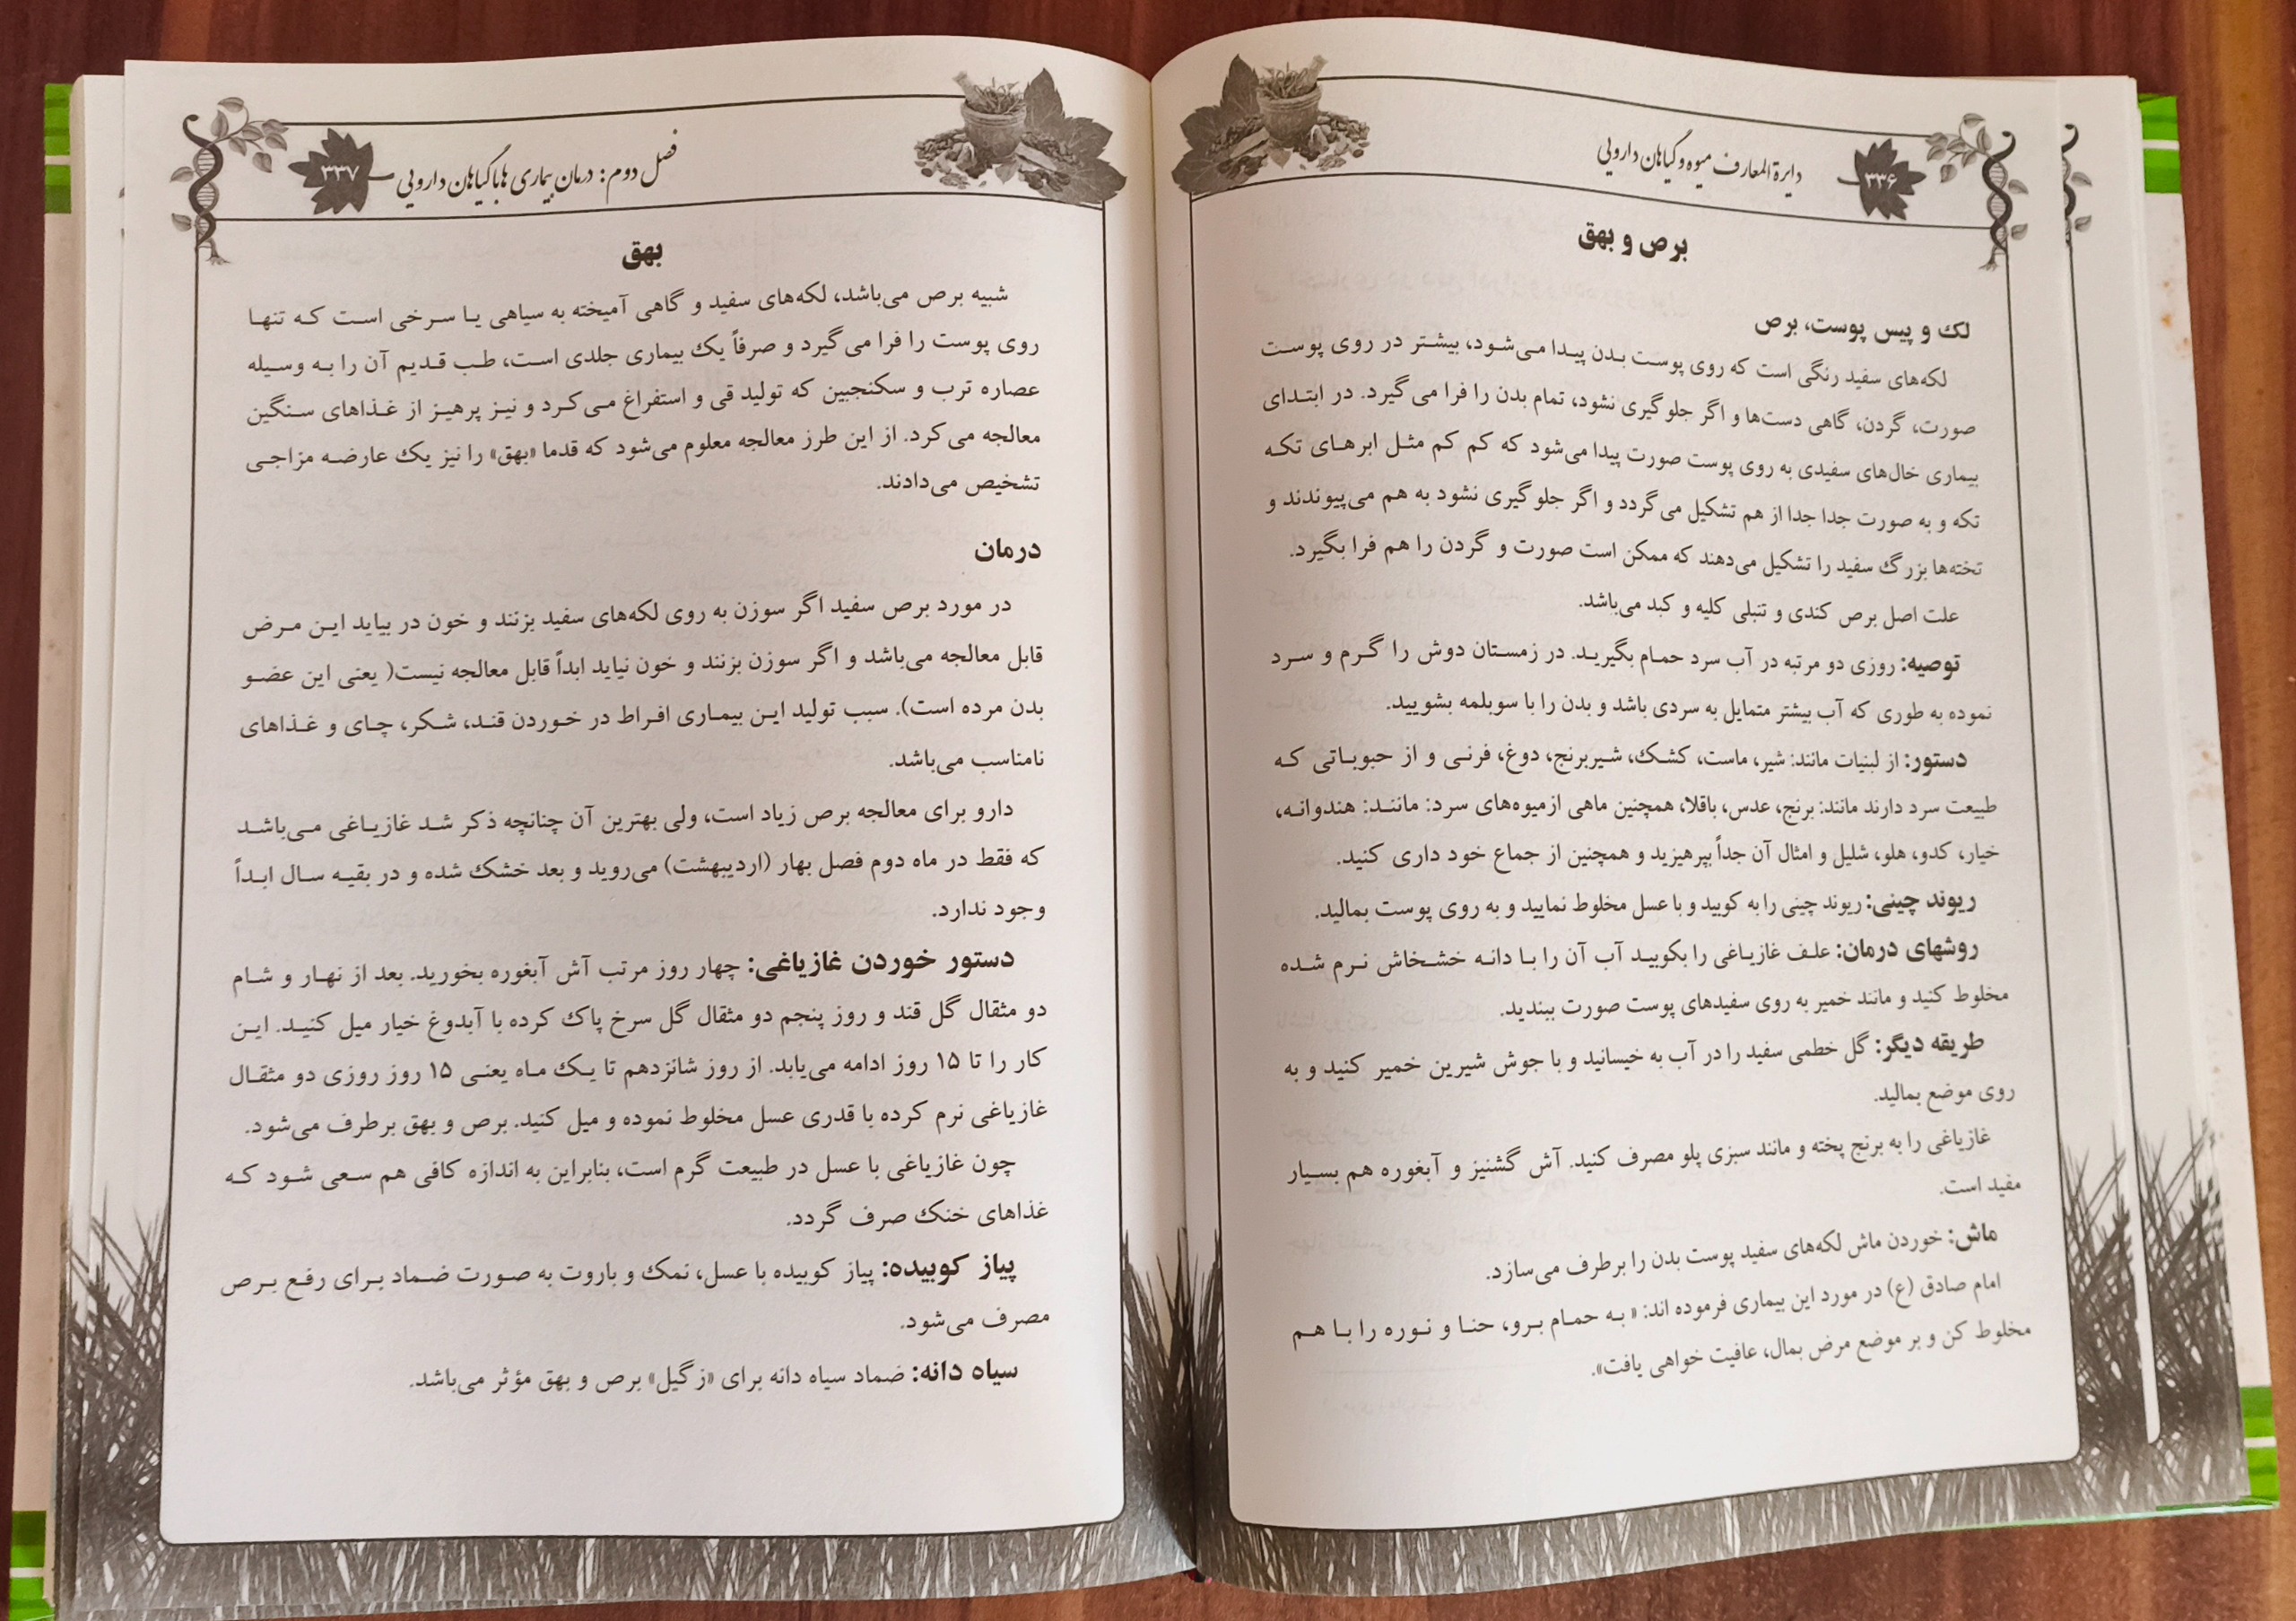 دایرة المعارف میوه و گیاهان دارویی
۳۳۶
برص و بهق
لک و پیس پوست، برص
لکه‌های سفید رنگی است که روی پوست بدن پیدا می‌شود، بیشتر در روی پوست
صورت، گردن، گاهی دست‌ها و اگر جلوگیری نشود، تمام بدن را فرا می‌گیرد. در ابتدای
بیماری خال‌های سفیدی به روی پوست صورت پیدا می‌شود که کم کم مثل ابرهای تکه
تکه و به صورت جدا جدا از هم تشکیل می‌گردد و اگر جلوگیری نشود به هم می‌پیوندند و
تخته‌ها بزرگ سفید را تشکیل می‌دهند که ممکن است صورت و گردن را هم فرا بگیرد.
علت اصل برص کندی و تنبلی کلیه و کبد می‌باشد.
توصیه: روزی دو مرتبه در آب سرد حمام بگیرید. در زمستان دوش را گرم و سرد
نموده به طوری که آب بیشتر متمایل به سردی باشد و بدن را با سوبلمه بشویید.
دستور: از لبنیات مانند: شیر، ماست، کشک، شیربرنج، دوغ، فرنی و از حبوباتی که
طبیعت سرد دارند مانند: برنج، عدس، باقلا، همچنین ماهی ازمیوه‌های سرد: مانند: هندوانه،
خیار، کدو، هلو، شلیل و امثال آن جداً بپرهیزید و همچنین از جماع خود داری کنید.
ریوند چینی: ریوند چینی را به کوبید و با عسل مخلوط نمایید و به روی پوست بمالید.
روشهای درمان: علف غازیاغی را بکوبید آب آن را با دانه خشخاش نرم شده
مخلوط کنید و مانند خمیر به روی سفیدهای پوست صورت ببندید.
طریقه دیگر: گل خطمی سفید را در آب به خیسانید و با جوش شیرین خمیر کنید و به
روی موضع بمالید.
غازیاغی را به برنج پخته و مانند سبزی پلو مصرف کنید. آش گشنیز و آبغوره هم بسیار
مفید است.
ماش: خوردن ماش لکه‌های سفید پوست بدن را برطرف می‌سازد.
امام صادق (ع) در مورد این بیماری فرموده اند: « به حمام برو، حنا و نوره را با هم
مخلوط کن و بر موضع مرض بمال، عافیت خواهی یافت».
فصل دوم: درمان بیماری ها با گیاهان دارویی
۳۳۷
بهق
شبیه برص می‌باشد، لکه‌های سفید و گاهی آمیخته به سیاهی یا سرخی است که تنها
روی پوست را فرا می‌گیرد و صرفاً یک بیماری جلدی است، طب قدیم آن را به وسیله
عصاره ترب و سکنجبین که تولید قی و استفراغ می‌کرد و نیز پرهیز از غذاهای سنگین
معالجه می‌کرد. از این طرز معالجه معلوم می‌شود که قدما «بهق» را نیز یک عارضه مزاجی
تشخیص می‌دادند.
درمان
در مورد برص سفید اگر سوزن به روی لکه‌های سفید بزنند و خون در بیاید این مرض
قابل معالجه می‌باشد و اگر سوزن بزنند و خون نیاید ابداً قابل معالجه نیست( یعنی این عضو
بدن مرده است). سبب تولید این بیماری افراط در خوردن قند، شکر، چای و غذاهای
نامناسب می‌باشد.
دارو برای معالجه برص زیاد است، ولی بهترین آن چنانچه ذکر شد غازیاغی می‌باشد
که فقط در ماه دوم فصل بهار (اردیبهشت) می‌روید و بعد خشک شده و در بقیه سال ابداً
وجود ندارد.
دستور خوردن غازیاغی: چهار روز مرتب آش آبغوره بخورید. بعد از نهار و شام
دو مثقال گل قند و روز پنجم دو مثقال گل سرخ پاک کرده با آبدوغ خیار میل کنید. این
کار را تا ۱۵ روز ادامه می‌یابد. از روز شانزدهم تا یک ماه یعنی ۱۵ روز روزی دو مثقال
غازیاغی نرم کرده با قدری عسل مخلوط نموده و میل کنید. برص و بهق برطرف می‌شود.
چون غازیاغی با عسل در طبیعت گرم است، بنابراین به اندازه کافی هم سعی شود که
غذاهای خنک صرف گردد.
پیاز کوبیده: پیاز کوبیده با عسل، نمک و باروت به صورت ضماد برای رفع برص
مصرف می‌شود.
سیاه دانه: ضماد سیاه دانه برای «زگیل» برص و بهق مؤثر می‌باشد.